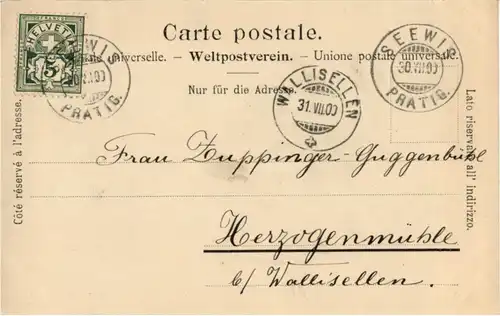 Carte postale.
Union postale universelle. – Weltpostverein. – Unione postale universale.
Nur für die Adresse.
HELVETIA
FRANCO
5
SEEWIS
30.VII.00
PRÄTIG.
WALLISELLEN
31.VII.00
SEEWIS
30.VII.00
PRÄTIG.
Côté réservé à l'adresse.
Lato riservato all' indirizzo.
Frau Zuppinger-Guggenbühl
Herzogenmühle
b/ Wallisellen.